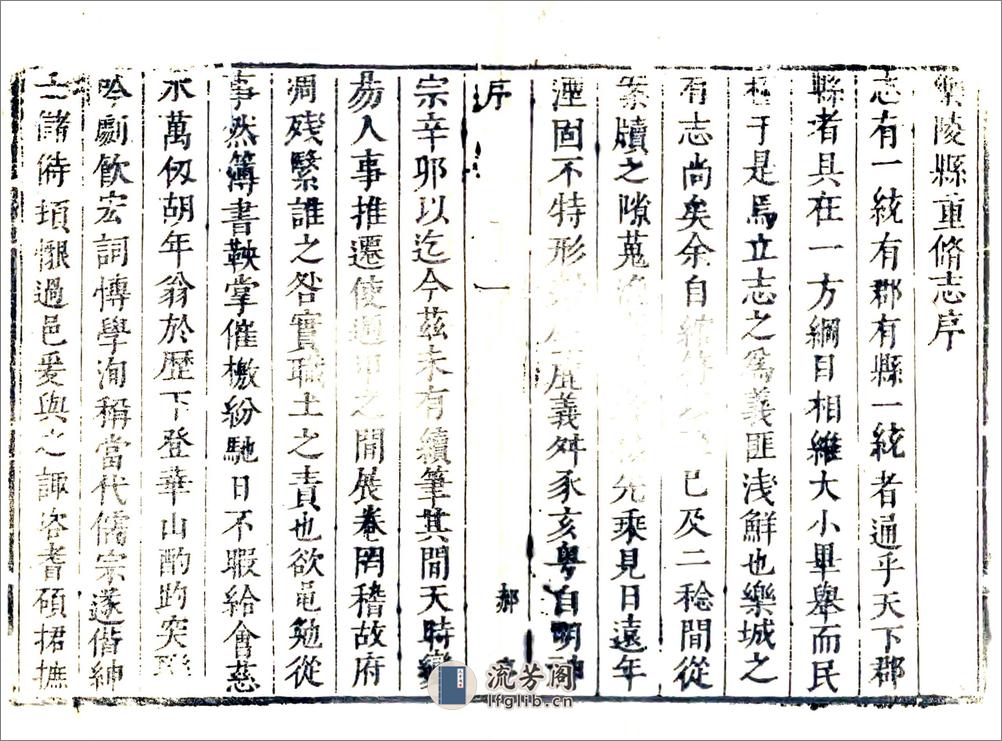 樂陵縣重脩志序
志有一統有郡有縣一統者通乎天下郡
縣者具在一方綱目相維大小畢舉而民
于是焉立志之為義匪淺鮮也樂城之
有志尚矣余自 已及二稔間從
案牘之隙蒐 先乘見日遠年
湮固不特形 義舛豕亥粵自明神
序 一 郝序
宗辛卯以迄今茲未有續筆其間天時變
易人事推遷使 之間展卷罔稽故府
凋殘繄誰之咎實職土之責也欲黽勉從
事然簿書鞅掌催檄紛馳日不暇給會慈
水萬伋胡年翁於歷下登華山酌趵突
吟劇飲宏詞博學洵稱當代儒宗遂偕紳
士儲待 過邑爰與之諏咨耆碩捃摭
流芳阁
lfglib.cn